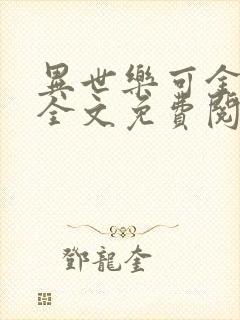 異世樂可全
全文免費閱
鄧龍奎